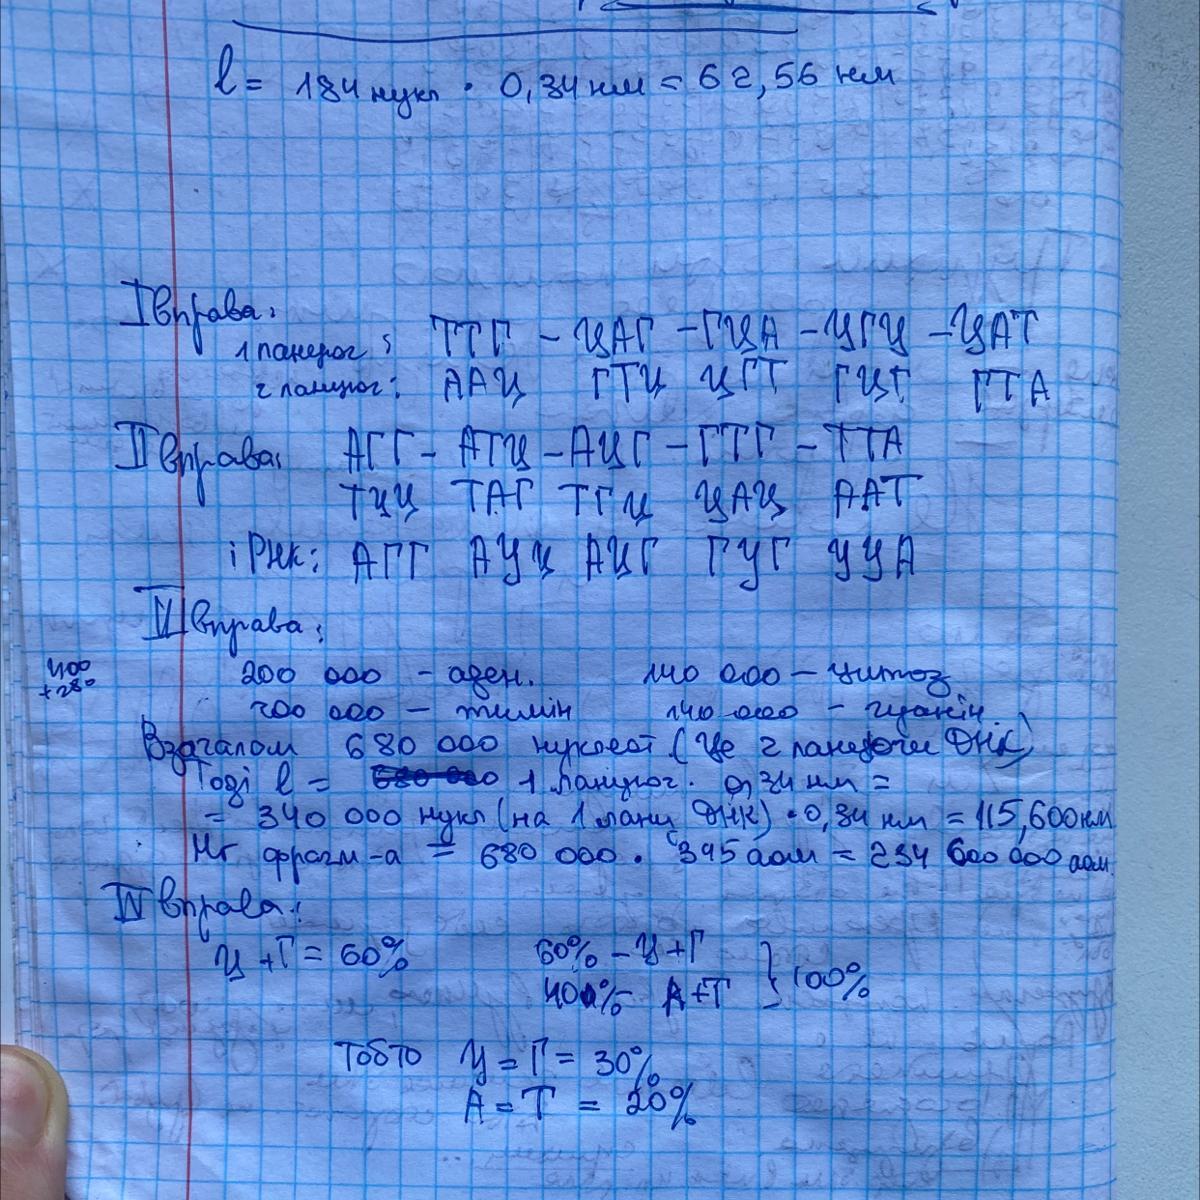 l = 184 нукл · 0,34 нм = 62,56 нм
I вправа:
1 ланцюг: ТТГ – ЦАГ – ГЦА – ЦГЦ – ЦАТ
2 ланцюг: ААЦ ГТЦ ЦГТ ГЦГ ГТА
II вправа: АГГ – АТЦ – АЦГ – ГТГ – ТТА
ТЦЦ ТАГ ТГЦ ЦАЦ ААТ
іРНК: АГГ АУЦ АЦГ ГУГ УУА
VI вправа:
400
+280
200 000 – аден. 140 000 – цитоз
200 000 – тимін 140 000 – гуанін.
Взагалом 680 000 нуклеот (Це 2 ланцюги ДНК)
Тоді l = 1 ланцюг. 0,34 нм =
= 340 000 нукл (на 1 ланц ДНК) · 0,34 нм = 115,600 нм
Mr фрагм-а = 680 000 · 345 аом = 234 600 000 аом.
IV вправа:
Ц + Г = 60% 60% – Ц + Г
40% – А + Т } 100%
тобто Ц = Г = 30%
А = Т = 20%